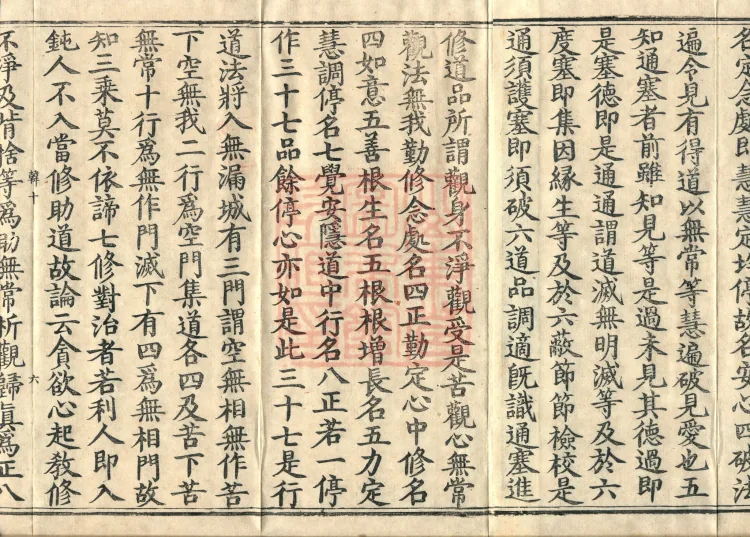 名定念處即慧慧定均停故名安心四破法
遍令見有得道以無常等慧遍破見愛也五
知通塞者前雖知見等是過未見其德過即
是塞德即是通通謂道滅無明滅等及於六
度塞即集因緣生等及於六蔽節節檢校是
通須護塞即須破六道品調適旣識通塞進
修道品所謂觀身不淨觀受是苦觀心無常
觀法無我勤修念處名四正勤定心中修名
四如意五善根生名五根根增長名五力定
慧調停名七覺安隱道中行名八正若一停
作三十七品餘停心亦如是此三十七是行
道法將入無漏城有三門謂空無相無作苦
下空無我二行爲空門集道各四及苦下苦
無常十行爲無作門滅下有四爲無相門故
知三乘莫不依諦七修對治者若利人即入
鈍人不入當修助道故論云貪欲心起教修
韓十
六
不淨及背捨等爲助無常析觀歸眞爲正八